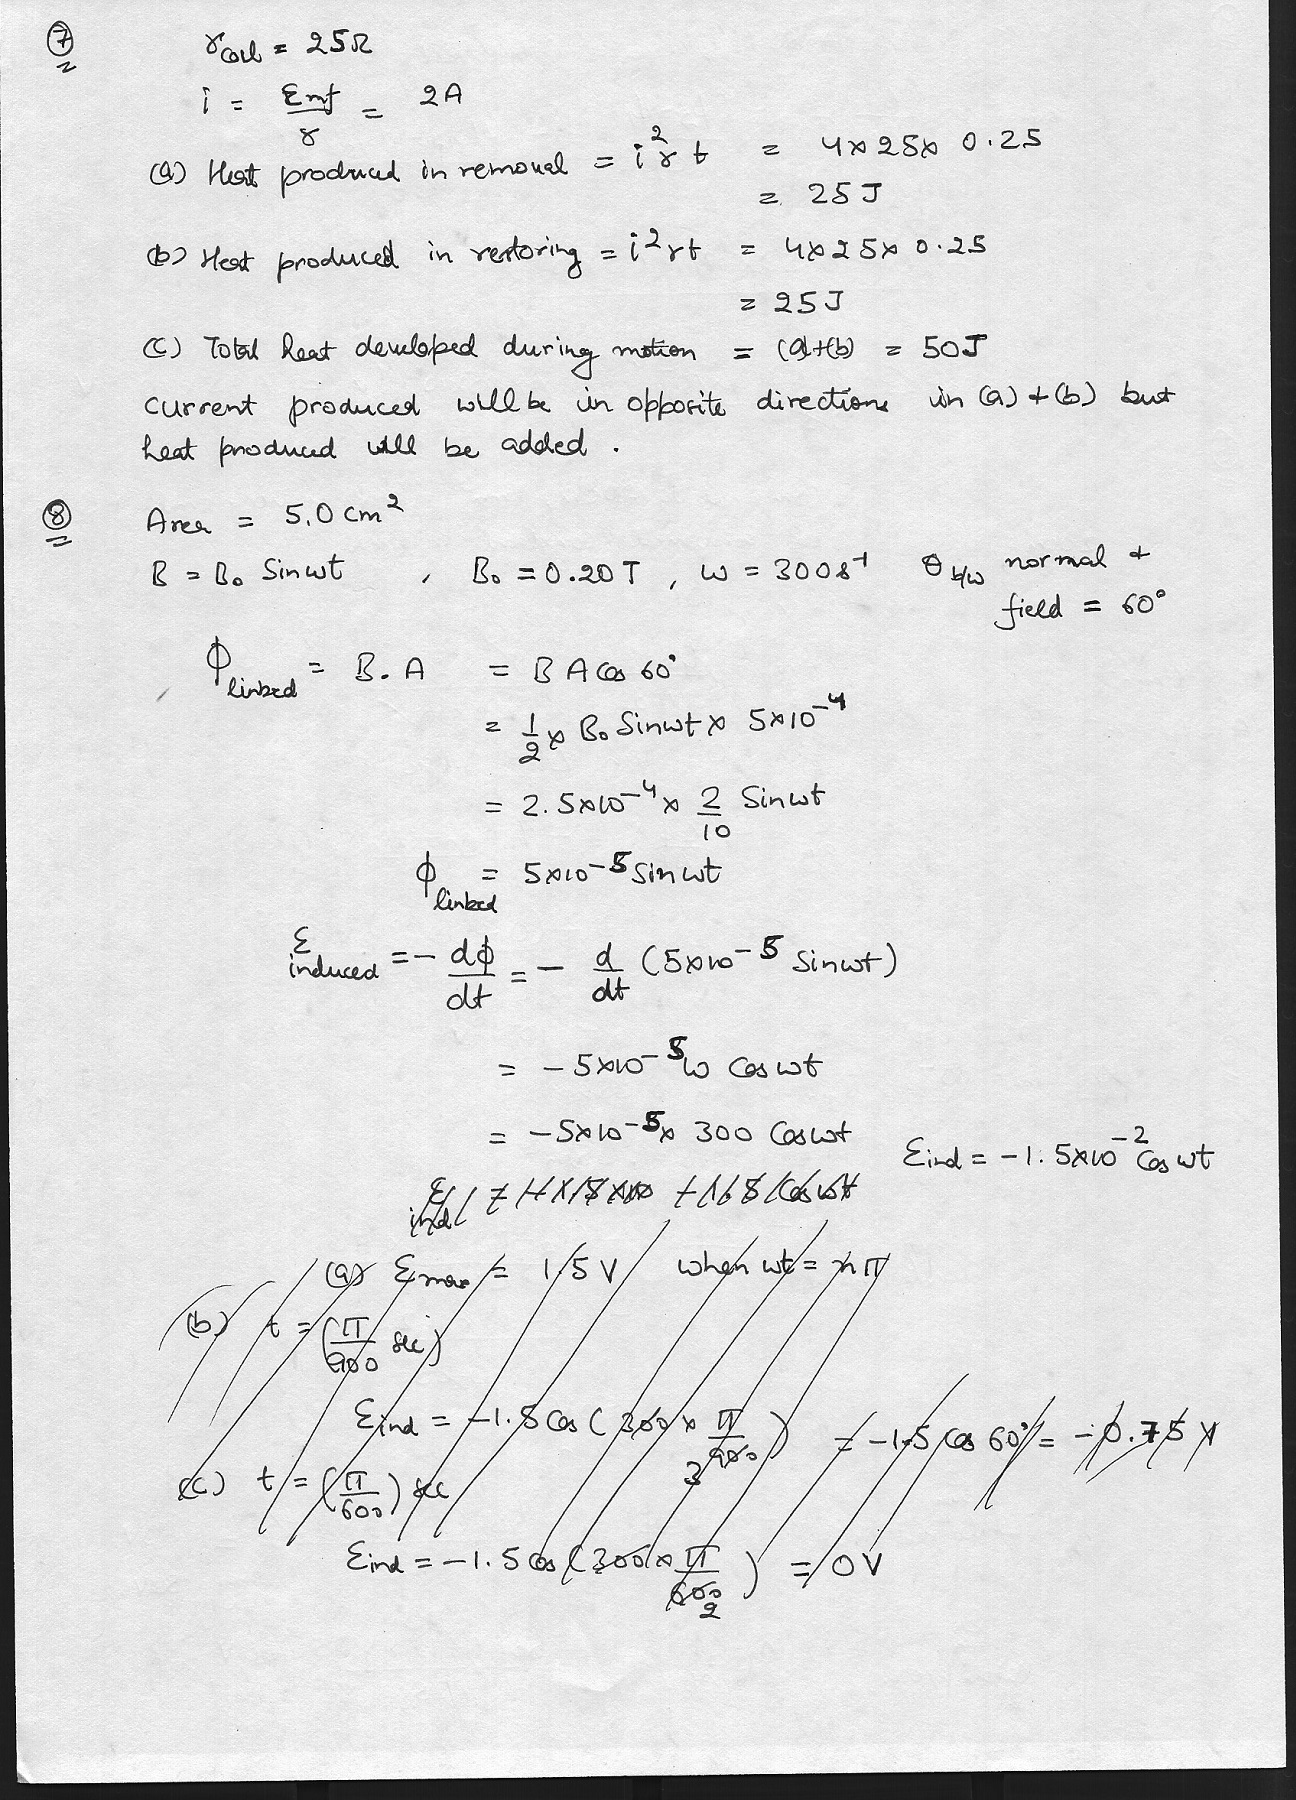 ⑦ r coil = 25Ω
i = Emf/r = 2A
(a) Heat produced in removal = i²rt = 4×25×0.25
= 25J
(b) Heat produced in restoring = i²rt = 4×25×0.25
= 25J
(c) Total heat developed during motion = (a)+(b) = 50J
current produced will be in opposite directions in (a) & (b) but
heat produced will be added.
⑧ Area = 5.0 cm²
B = B₀ Sinωt , B₀ = 0.20T , ω = 300s⁻¹ θ b/w normal &
field = 60°
ϕ linked = B.A = BA Cos 60°
= 1/2 × B₀ Sinωt × 5×10⁻⁴
= 2.5×10⁻⁴ × 2/10 Sinωt
ϕ linked = 5×10⁻⁵ Sinωt
ε induced = - dϕ/dt = - d/dt (5×10⁻⁵ Sinωt)
= -5×10⁻⁵ ω Cosωt
= -5×10⁻⁵ × 300 Cosωt
εind = -1.5×10⁻² Cosωt
(a) εmax = 1.5V when ωt = nπ
(b) t = (π/900 sec)
εind = -1.5 Cos (300 × π/900 3) = -1.5 Cos 60° = -0.75 V
(c) t = (π/600) sec
εind = -1.5 Cos (300 × π/600 2) = 0V